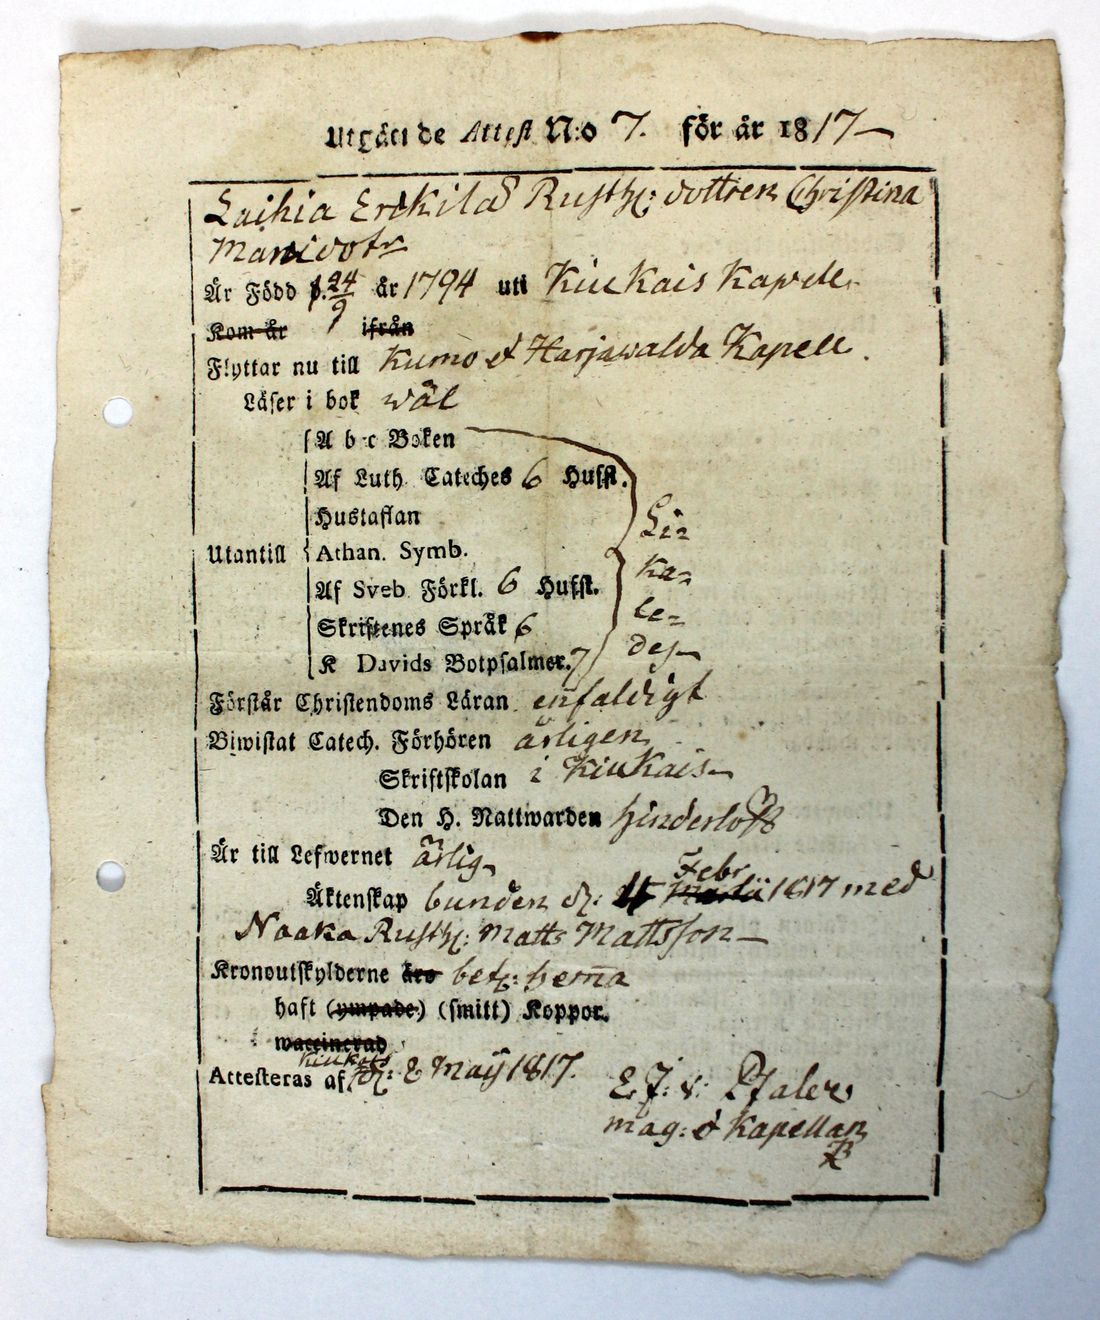 Utgående Attest N:o 7. för år 1817
Laihia Erckilä Rusth: dottren Christina
Är Född d. 24/9 år 1794 uti Kiukais Kapell.
Kom år ifrån
Flyttar nu till Kumo & Harjawalda Kapell.
Läser i bok wäl
A b c Boken
Af Luth Cateches 6 Hufst.
Hustaflan
Utantill Athan. Symb.
Af Sveb Förkl. 6 Hufst.
Skriftenes Språk 6
K Davids Botpsalmer. 7
Li-
ka-
le-
des
Förstår Christendoms Läran enfaldigt
Biwistat Catech. Förhören årligen
Skriftskolan i Kiukais
Den H. Nattwarden hinderlöst
Är till Lefwernet ärlig
Febr
Äktenskap bunden d: 4 Martii 1817 med
Naaka Rusth: Matts Mattsson
Kronoutskylderne äro bet: hema
haft (ympade) (smitt) Koppor.
waccinerad
Kiukais
Attesteras af d: 8 Maij 1817.
E. J. v: Pfaler
Mag: & Kapellan